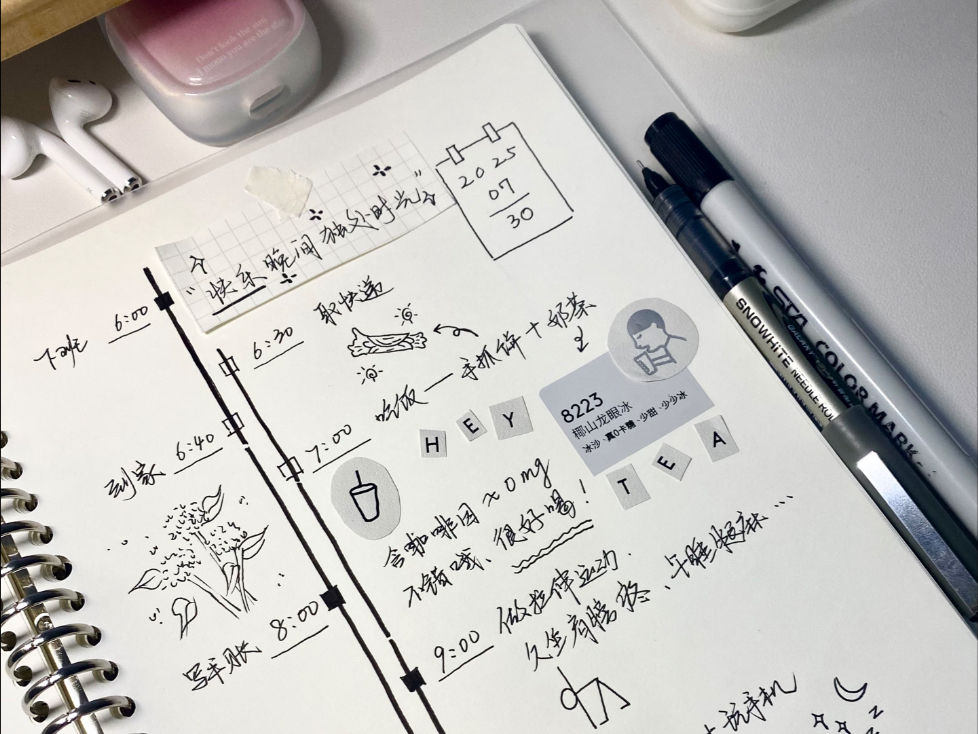 Don't look the sun
"快乐晚间独处时光"
2025
07
30
6:00
下班
6:30
取快递
吃饭 — 手抓饼 + 奶茶
6:40
到家
7:00
HEY
TEA
8223
椰山龙眼冰
冰沙·真0卡糖·少甜·少少冰
含咖啡因 × 0 mg
不错哦、很好喝!
8:00
写手账
9:00
做拉伸运动.
久坐肩膀
午睡
玩手机
z
z
STA COLOR MARK
SNOWHITE NEEDLE ROL